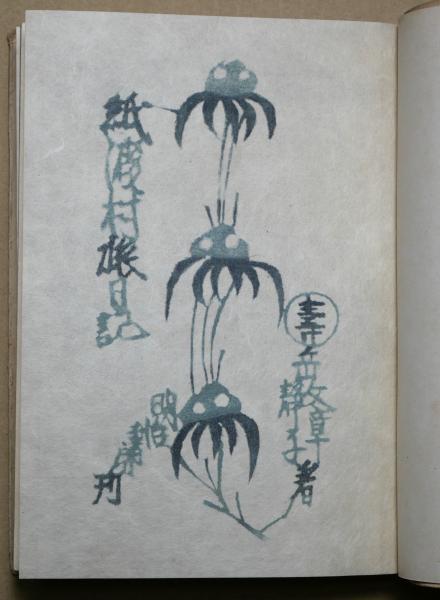 壽岳文章
静子 著
紙漉村旅日記
明治書房 刊